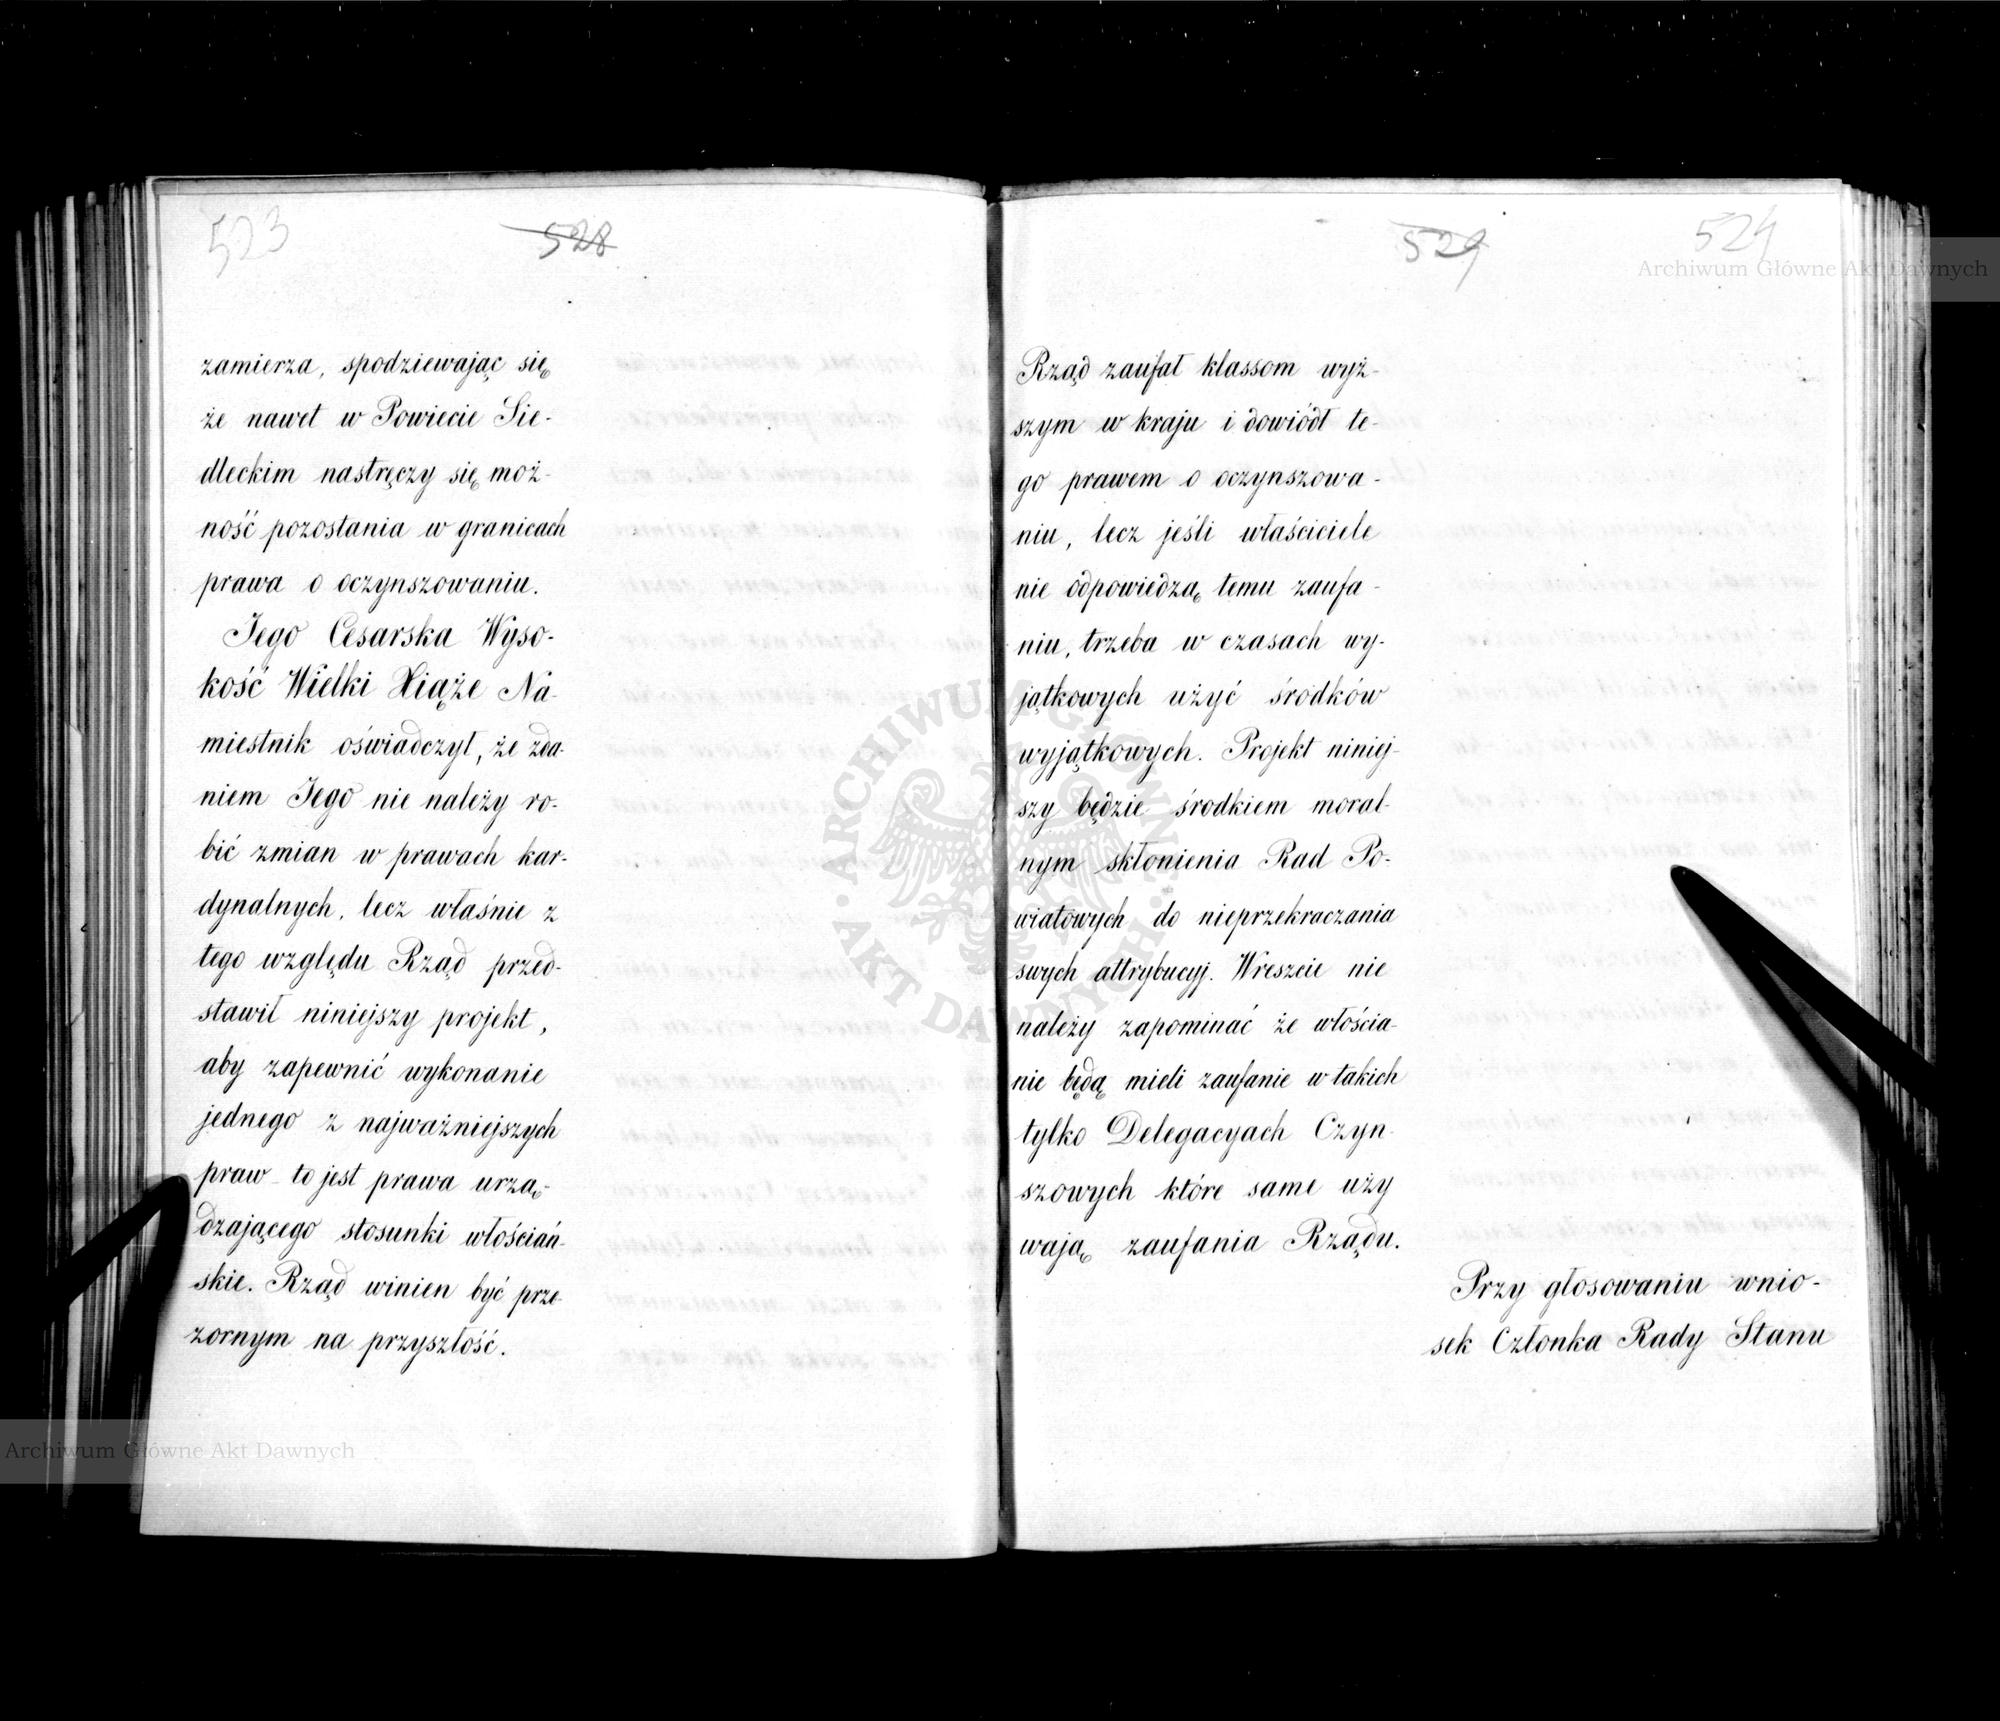 523
528
zamierza, spodziewając się
że nawet w Powiecie Sie-
dleckim nastręczy się moż-
ność pozostania w granicach
prawa o oczynszowaniu.
Jego Cesarska Wyso-
kość Wielki Xiąże Na-
miestnik oświadczył, że zda-
niem Jego nie należy ro-
bić zmian w prawach kar-
dynalnych, lecz właśnie z
tego względu Rząd przed-
stawił niniejszy projekt,
aby zapewnić wykonanie
jednego z najważniejszych
praw to jest prawa urzą-
dzającego stosunki włościań-
skie. Rząd winien być prze-
zornym na przyszłość.
529
524
Rząd zaufał klassom wyż-
szym w kraju i dowiódł te-
go prawem o oczynszowa-
niu, lecz jeśli właściciele
nie odpowiedzą temu zaufa-
niu, trzeba w czasach wy-
jątkowych użyć środków
wyjątkowych. Projekt niniej-
szy będzie środkiem moral-
nym skłonienia Rad Po-
wiatowych do nieprzekraczania
swych attrybucyj. Wreszcie nie
należy zapominać że włościa-
nie będą mieli zaufanie w takich
tylko Delegacyach Czyn-
szowych które same uży
wają zaufania Rządu.
Przy głosowaniu wnio-
sek Członka Rady Stanu
Archiwum Główne Akt Dawnych
Archiwum Główne Akt Dawnych
ARCHIWUM GŁÓWNE · AKT DAWNYCH ·